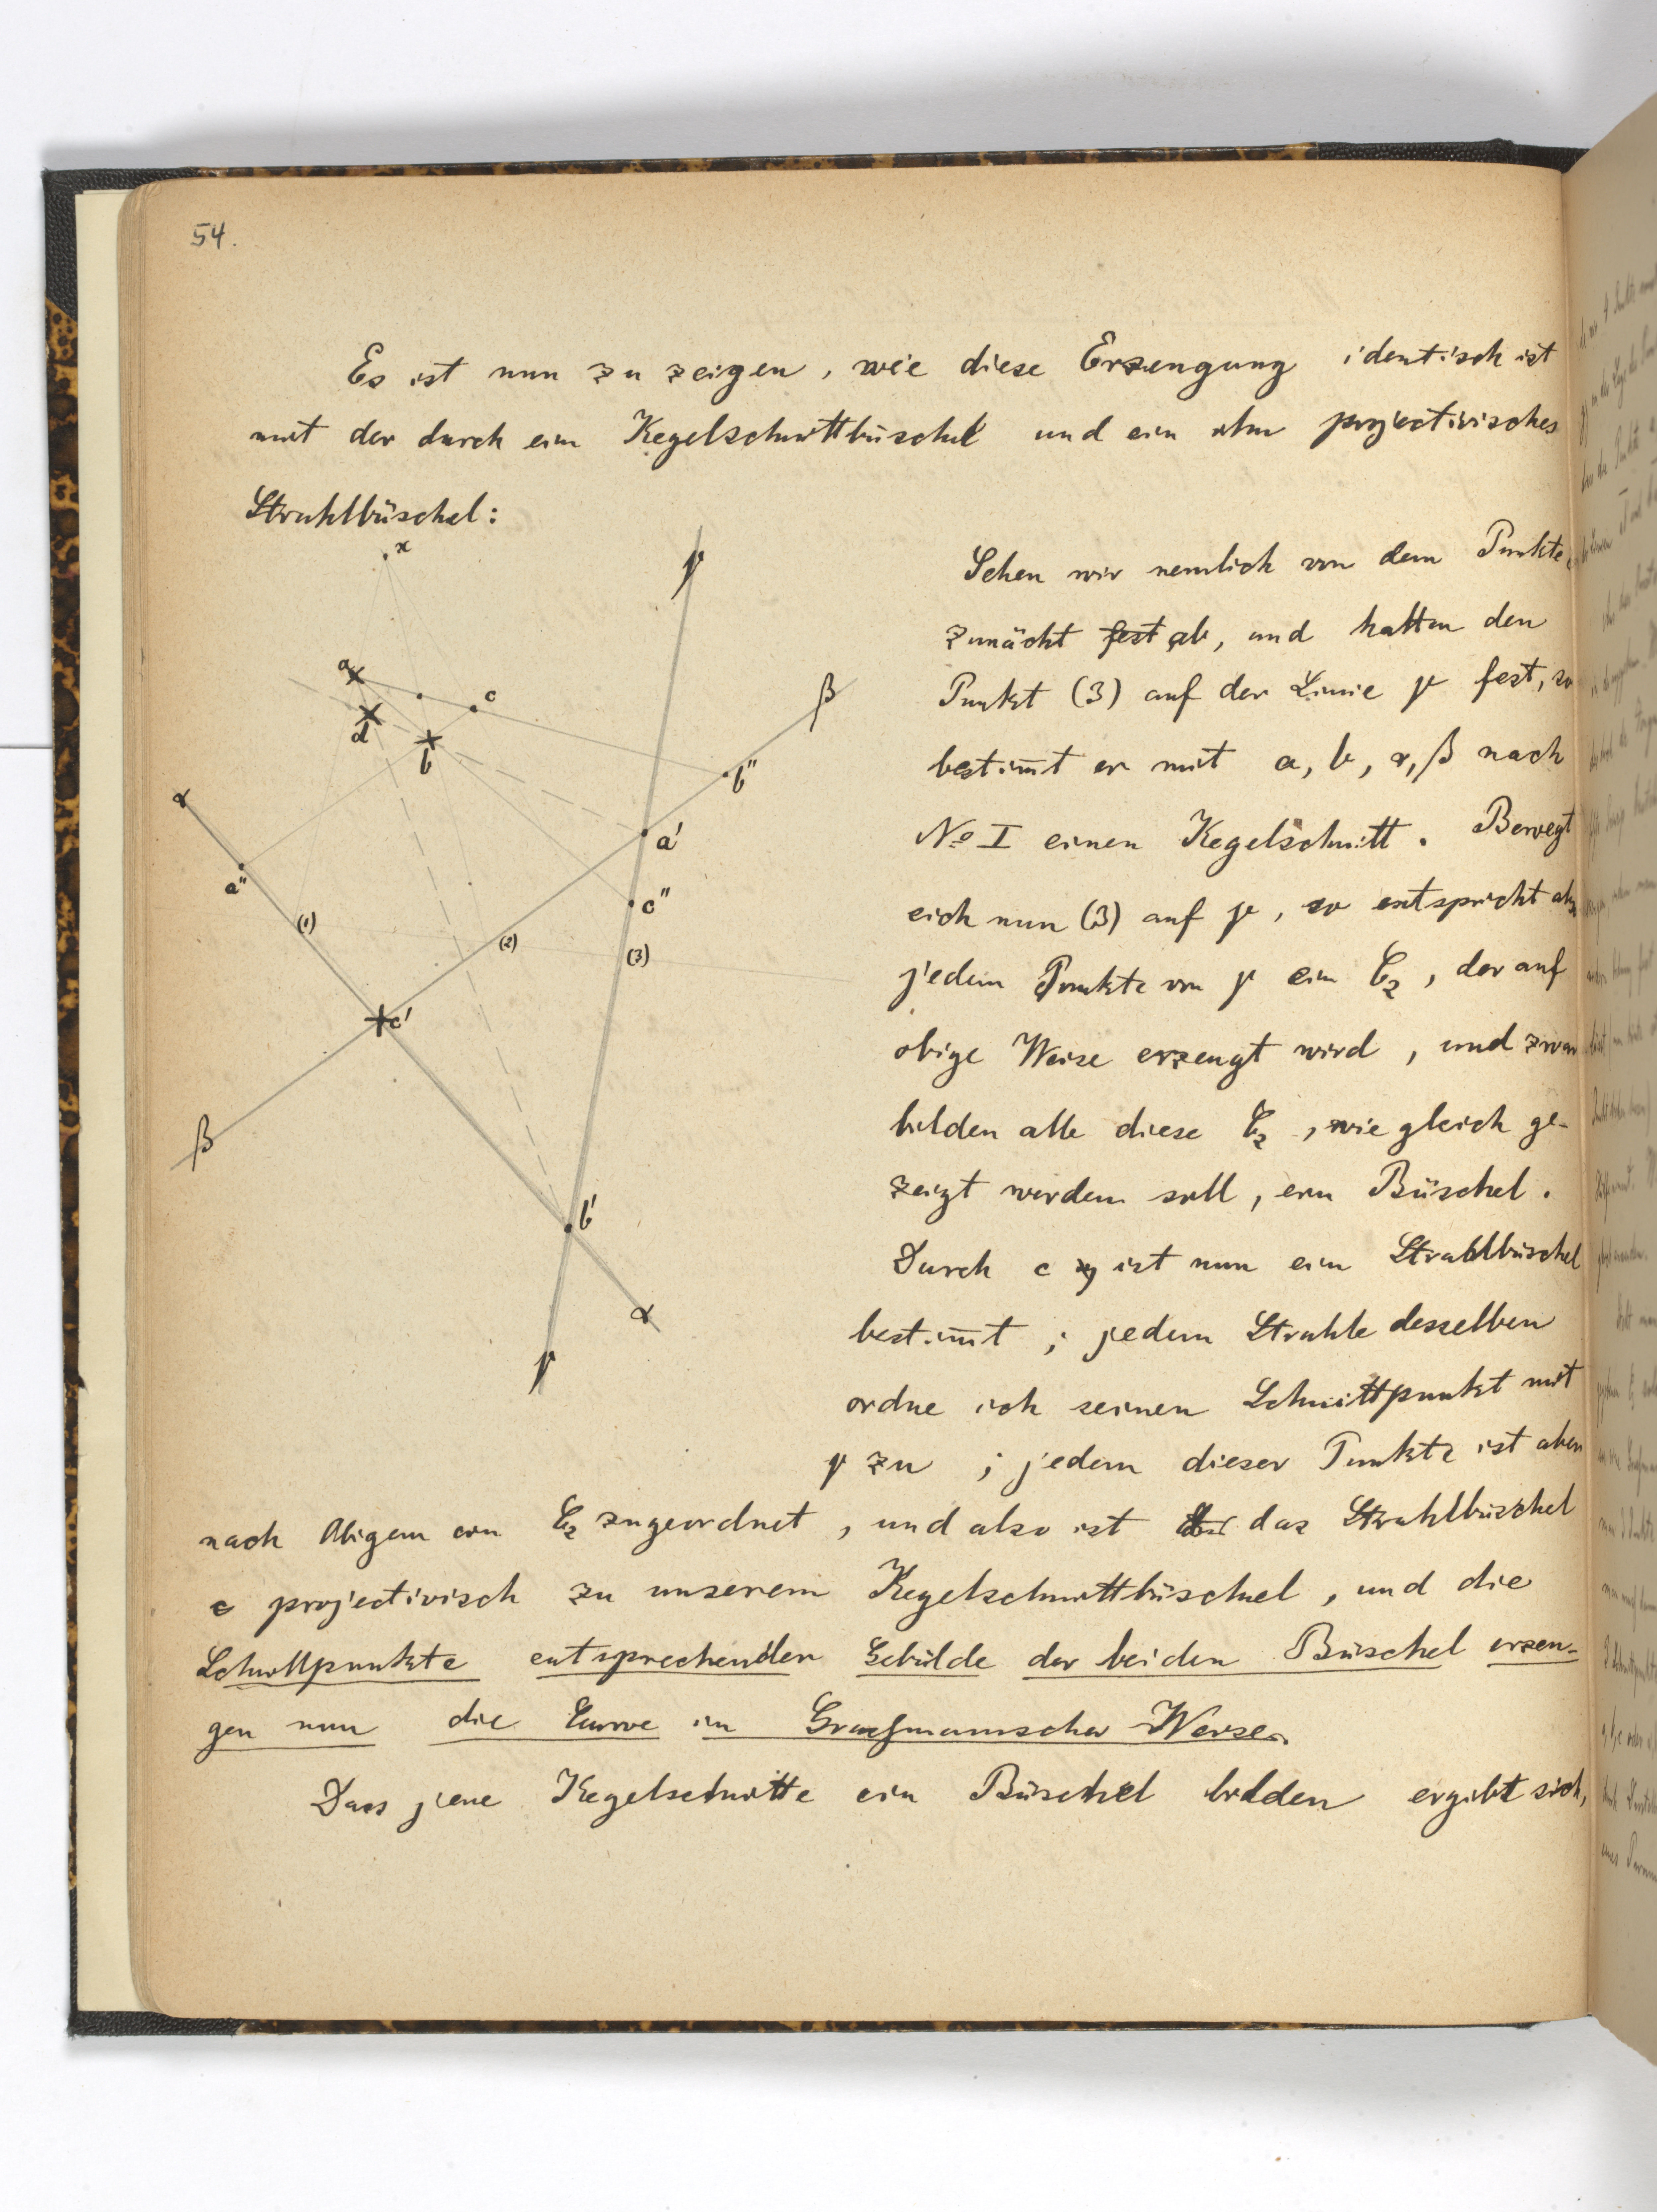 54.
Es ist nun zu zeigen, wie diese Erzeugung identisch ist
mit der durch ein Kegelschnittbüschel und ein ihm projectivisches
Strahlbüschel:
x
γ
Sehen wir nemlich von dem Punkte c
zunächt fest ab, und halten den
a
c
d
b
β
Punkt (3) auf der Linie γ fest, so
b"
bestim̄t er mit a, b, α, β nach
α
a'
No I einen Kegelschnitt. Bewegt
a"
c"
sich nun (3) auf γ, so entspricht also
(1)
(2)
(3)
jedem Punkte von γ ein C2, der auf
c'
obige Weise erzeugt wird, und zwar
β
bilden alle diese C2, wie gleich ge-
zeigt werden soll, ein Büschel.
b'
Durch c ist nun ein Strahlbüschel
α
bestim̄t; jedem Strahle desselben
γ
ordne ich seinen Schnittpunkt mit
γ zu; jedem dieser Punkte ist aber
nach Obigem ein C2 zugeordnet, und also ist das Strahlbüschel
c projectivisch zu unserem Kegelschnittbüschel, und die
Schnittpunkte entsprechender Gebilde der beiden Büschel erzeu-
gen nun die Curve in Graßmannscher Weise.
Dass jene Kegelschnitte ein Büschel bilden ergibt sich,